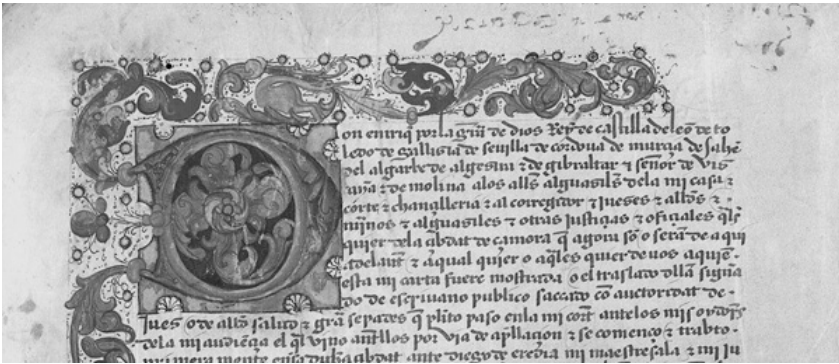 Don enrriq̃ por la grãa de dios Rey de castilla de leõ de to
ledo de gallisia de seuilla de cordoua de murcia de jahẽ
del algarbe de algesira ⁊ de gibraltar ⁊ señor de vis
caya ⁊ de molina alos alłłs alguasiłs dela mi casa ⁊
corte ⁊ chançelleria ⁊ al corregidor ⁊ jueses ⁊ alłłs ⁊
mĩnos ⁊ alguasiles ⁊ otras justiçias ⁊ ofiçiales q̃łs
quier dela çibdat de çamora q̃ agora sõ o serã de a qui
adelante ⁊ a qual quier o a q̃les quier de uos a quiẽ
esta mi carta fuere mostrada o el traslado della signa
do de escriuano publico sacado cõ auctoridat de
jues o de alłł salud ⁊ grã sepades q̃ plito paso enla mi cort antelos mis oydors
dela mi audiẽçia el q̃l vino antellos por via de apellaçion ⁊ se començo ⁊ trabto
primera mente enla dicha çibdat ante diego de eredia mi maestresala ⁊ mi ju